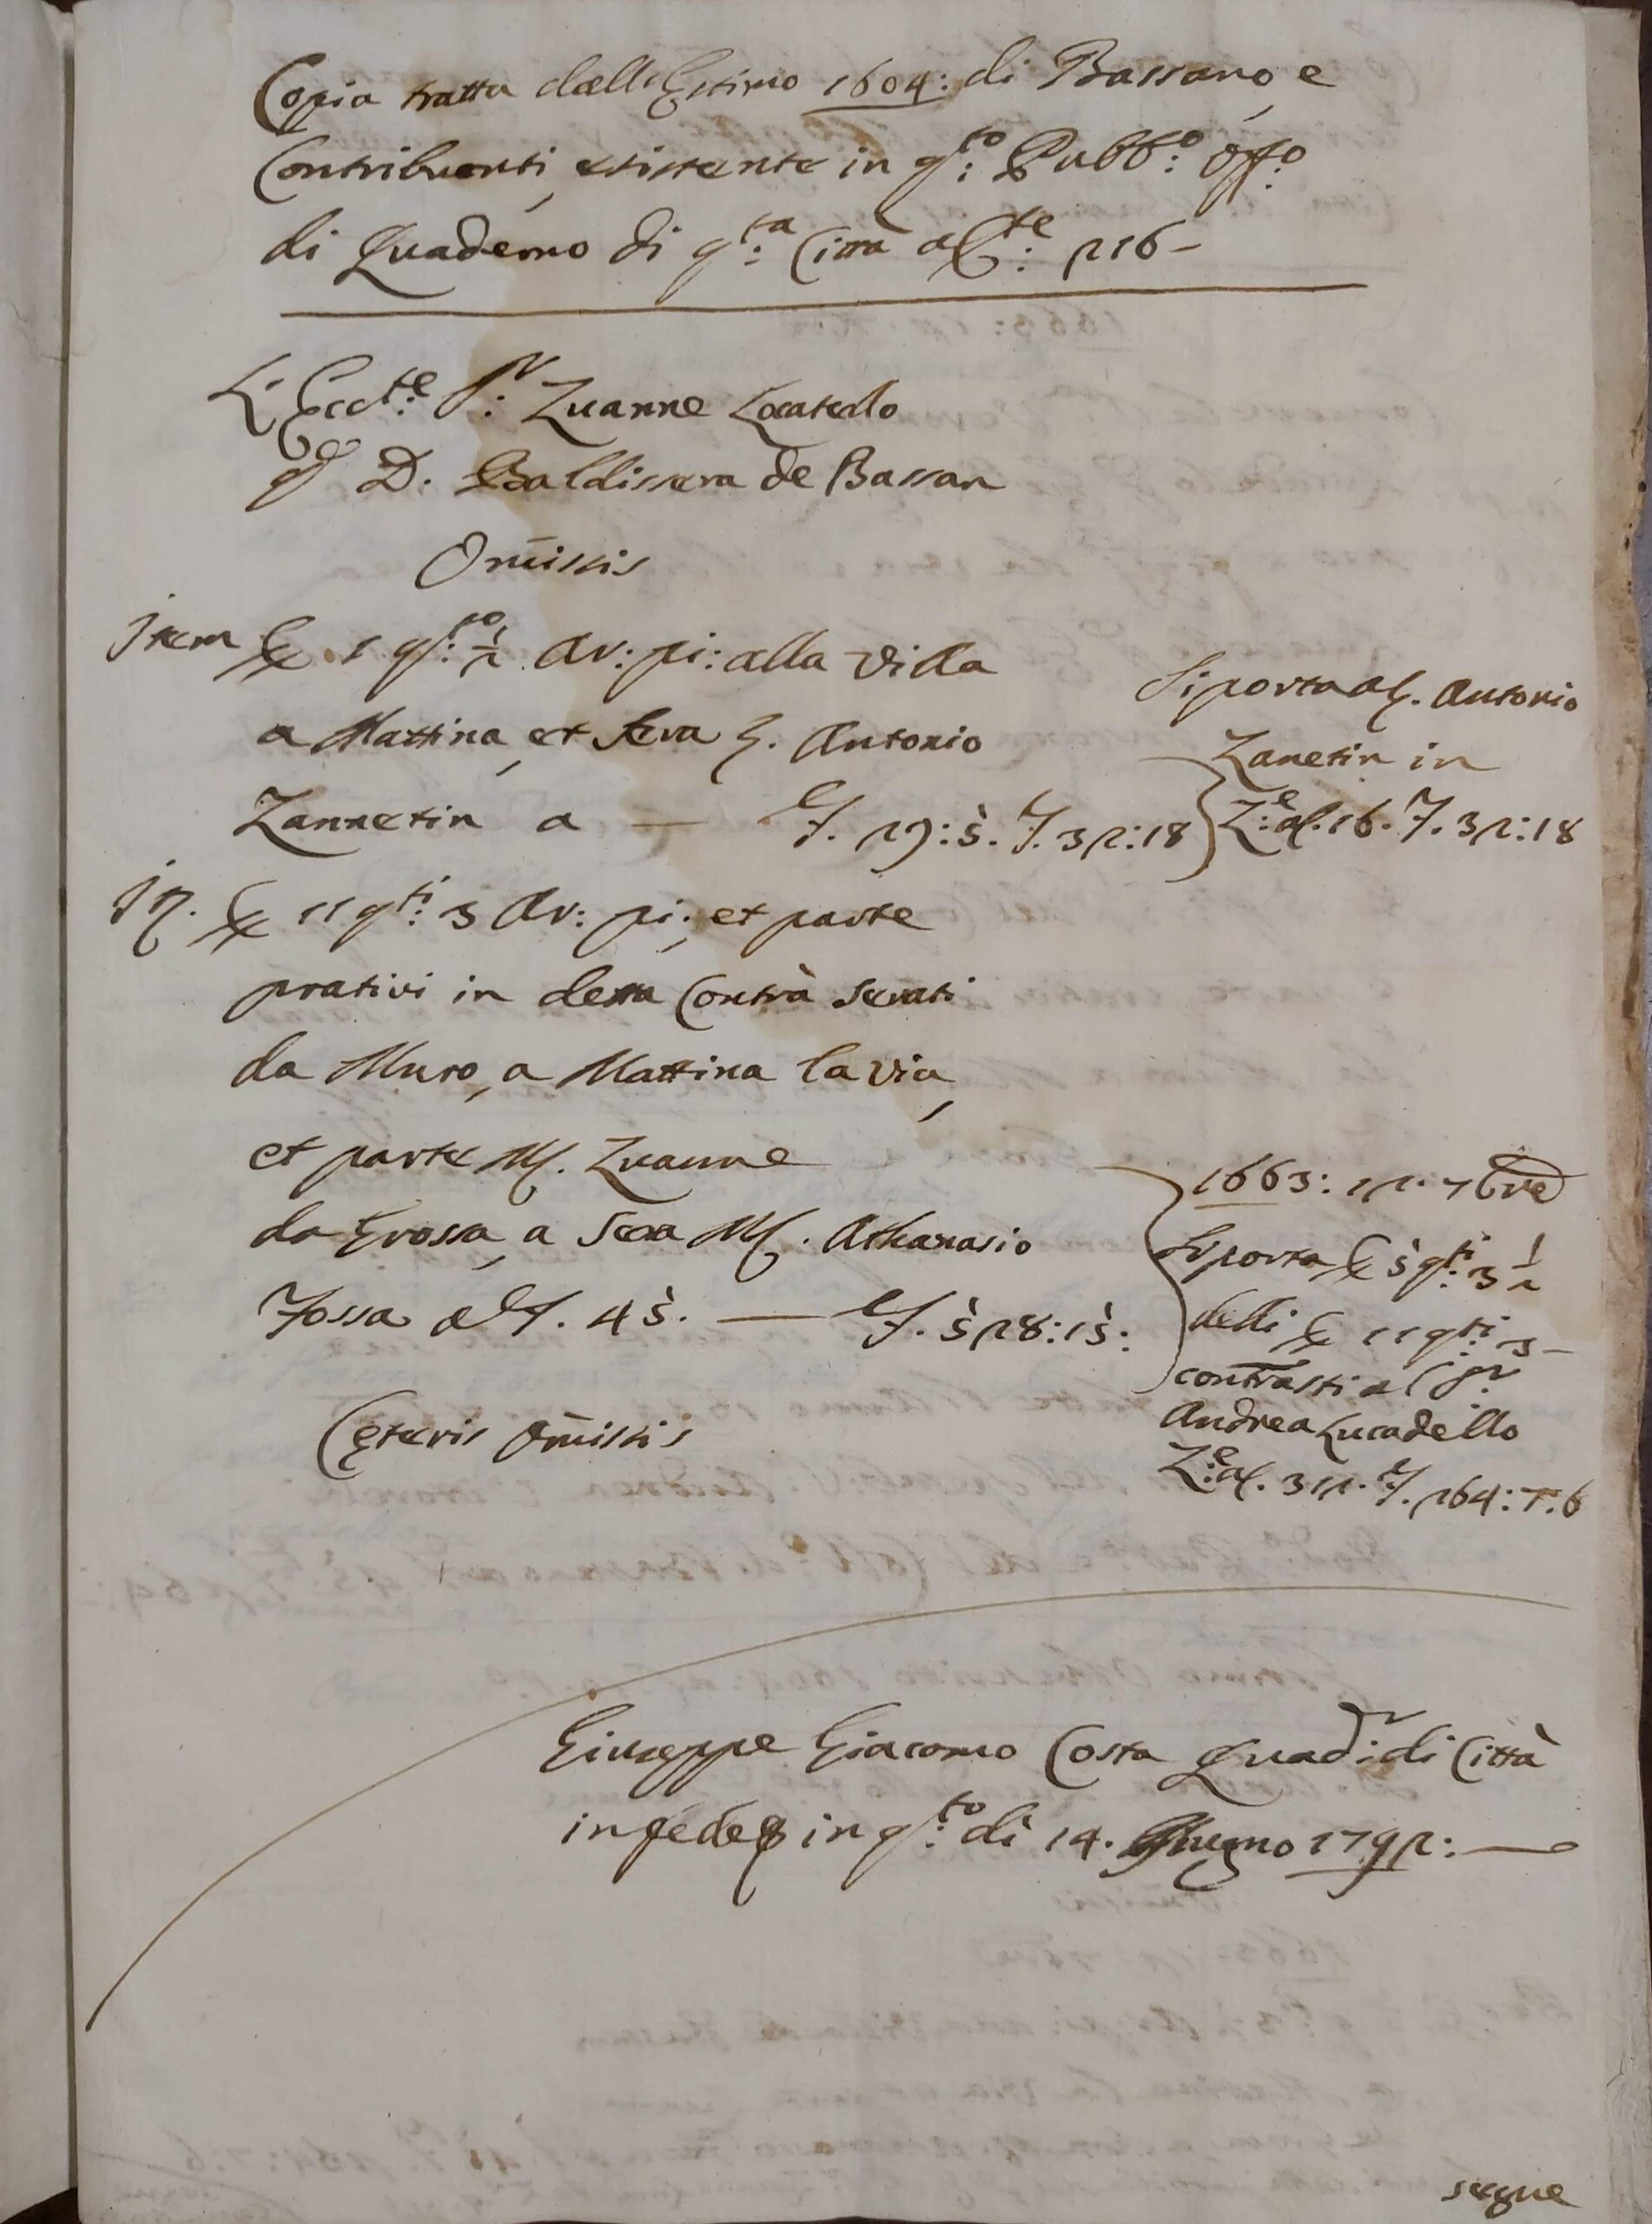 Copia tratta dall'Estimo 1604: di Bassano, e
Contribuenti, esistente in q:to Pubb:o Off:o
di Quaderno di q:ta Città a C:te 216-
L'Ecc:te S:r Zuanne Locatello
q D. Baldissera de Bassan
Om̄issis
Item C. 1 q:to 1/2 Ar: pi: alla Villa
a Mattina, et Sera S. Antonio
Zannetin a — £. 29: 5. £. 32:18
Si porta a S. Antonio
Zanetin in
Z:e al. 16. £. 32:18
It. C. 11 q:ti 3 Ar: pi:, et parte
prativi in detta Contrà serati
da Muro, a Mattina la via,
et parte M. Zuanne
da Grossa, a Sera M. Athanasio
Fossa a £. 45. — £. 528:15:
1663: 12. 7bre
Si porta C. 5 q:ti 3 1/2
delli C. 11 q:ti 3-
contrasti al S:r
Andrea Lucadello
Z:e al. 312. £. 264: 7.6
Cęteris om̄issis
Giuseppe Giacomo Costa Quad:r di Città
in fede in q:to dì 14. Giugno 1792: —
segue